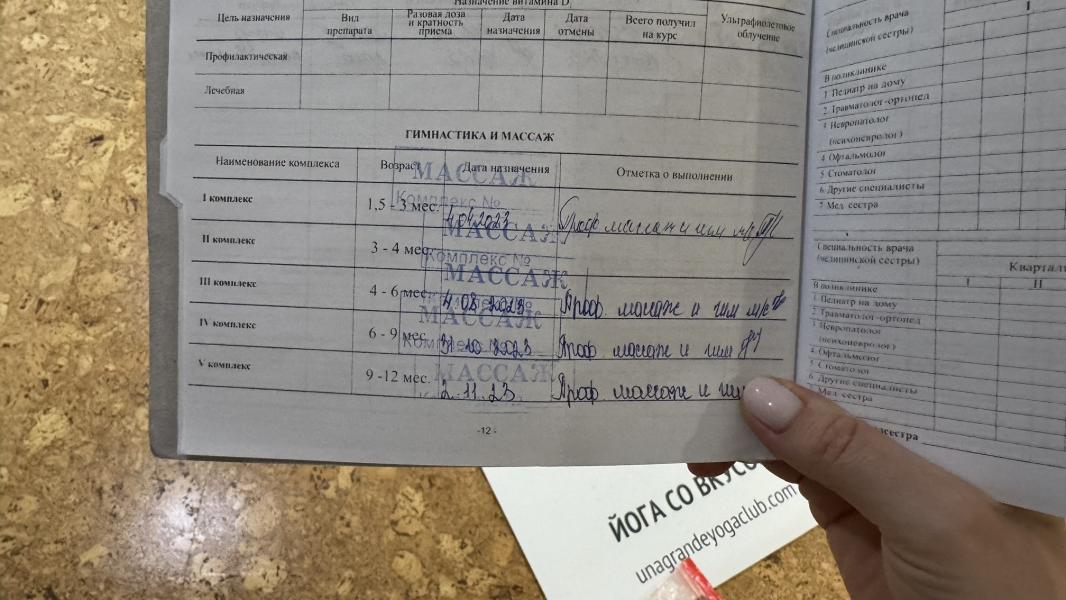 Назначение витамина D
Цель назначения Вид препарата Разовая доза и кратность приема Дата назначения Дата отмены Всего получил на курс Ультрафиолетовое облучение
Профилактическая
Лечебная
ГИМНАСТИКА И МАССАЖ
Наименование комплекса Возраст Дата назначения Отметка о выполнении
МАССАЖ
Комплекс №
I комплекс 1,5 - 3 мес. 4.04.2023 Проф. массаж и гим
МАССАЖ
II комплекс 3 - 4 мес.
Комплекс №
МАССАЖ
III комплекс 4 - 6 мес. 4.08.2023 Проф. массаж и гим
МАССАЖ
IV комплекс 6 - 9 мес. 31.10.2023 Проф. массаж и гим
МАССАЖ
V комплекс 9 -12 мес. 2.11.23 Проф. массаж и гим
-12 -
I
Специальность врача
(медицинской сестры)
В поликлинике
1 Педиатр на дому
2. Травматолог-ортопед
3 Невропатолог
(психоневролог)
4 Офтальмолог
5 Стоматолог
6 Другие специалисты
7 Мед. сестра
Специальность врача
(медицинской сестры)
Квартал
I II
В поликлинике
1 Педиатр на дому
2 Травматолог-ортопед
3 Невропатолог
(психоневролог)
4 Офтальмолог
5 Стоматолог
6 Другие специалисты
7 Мед. сестра
ЙОГА СО ВКУСО
unagrandeyogaclub.com